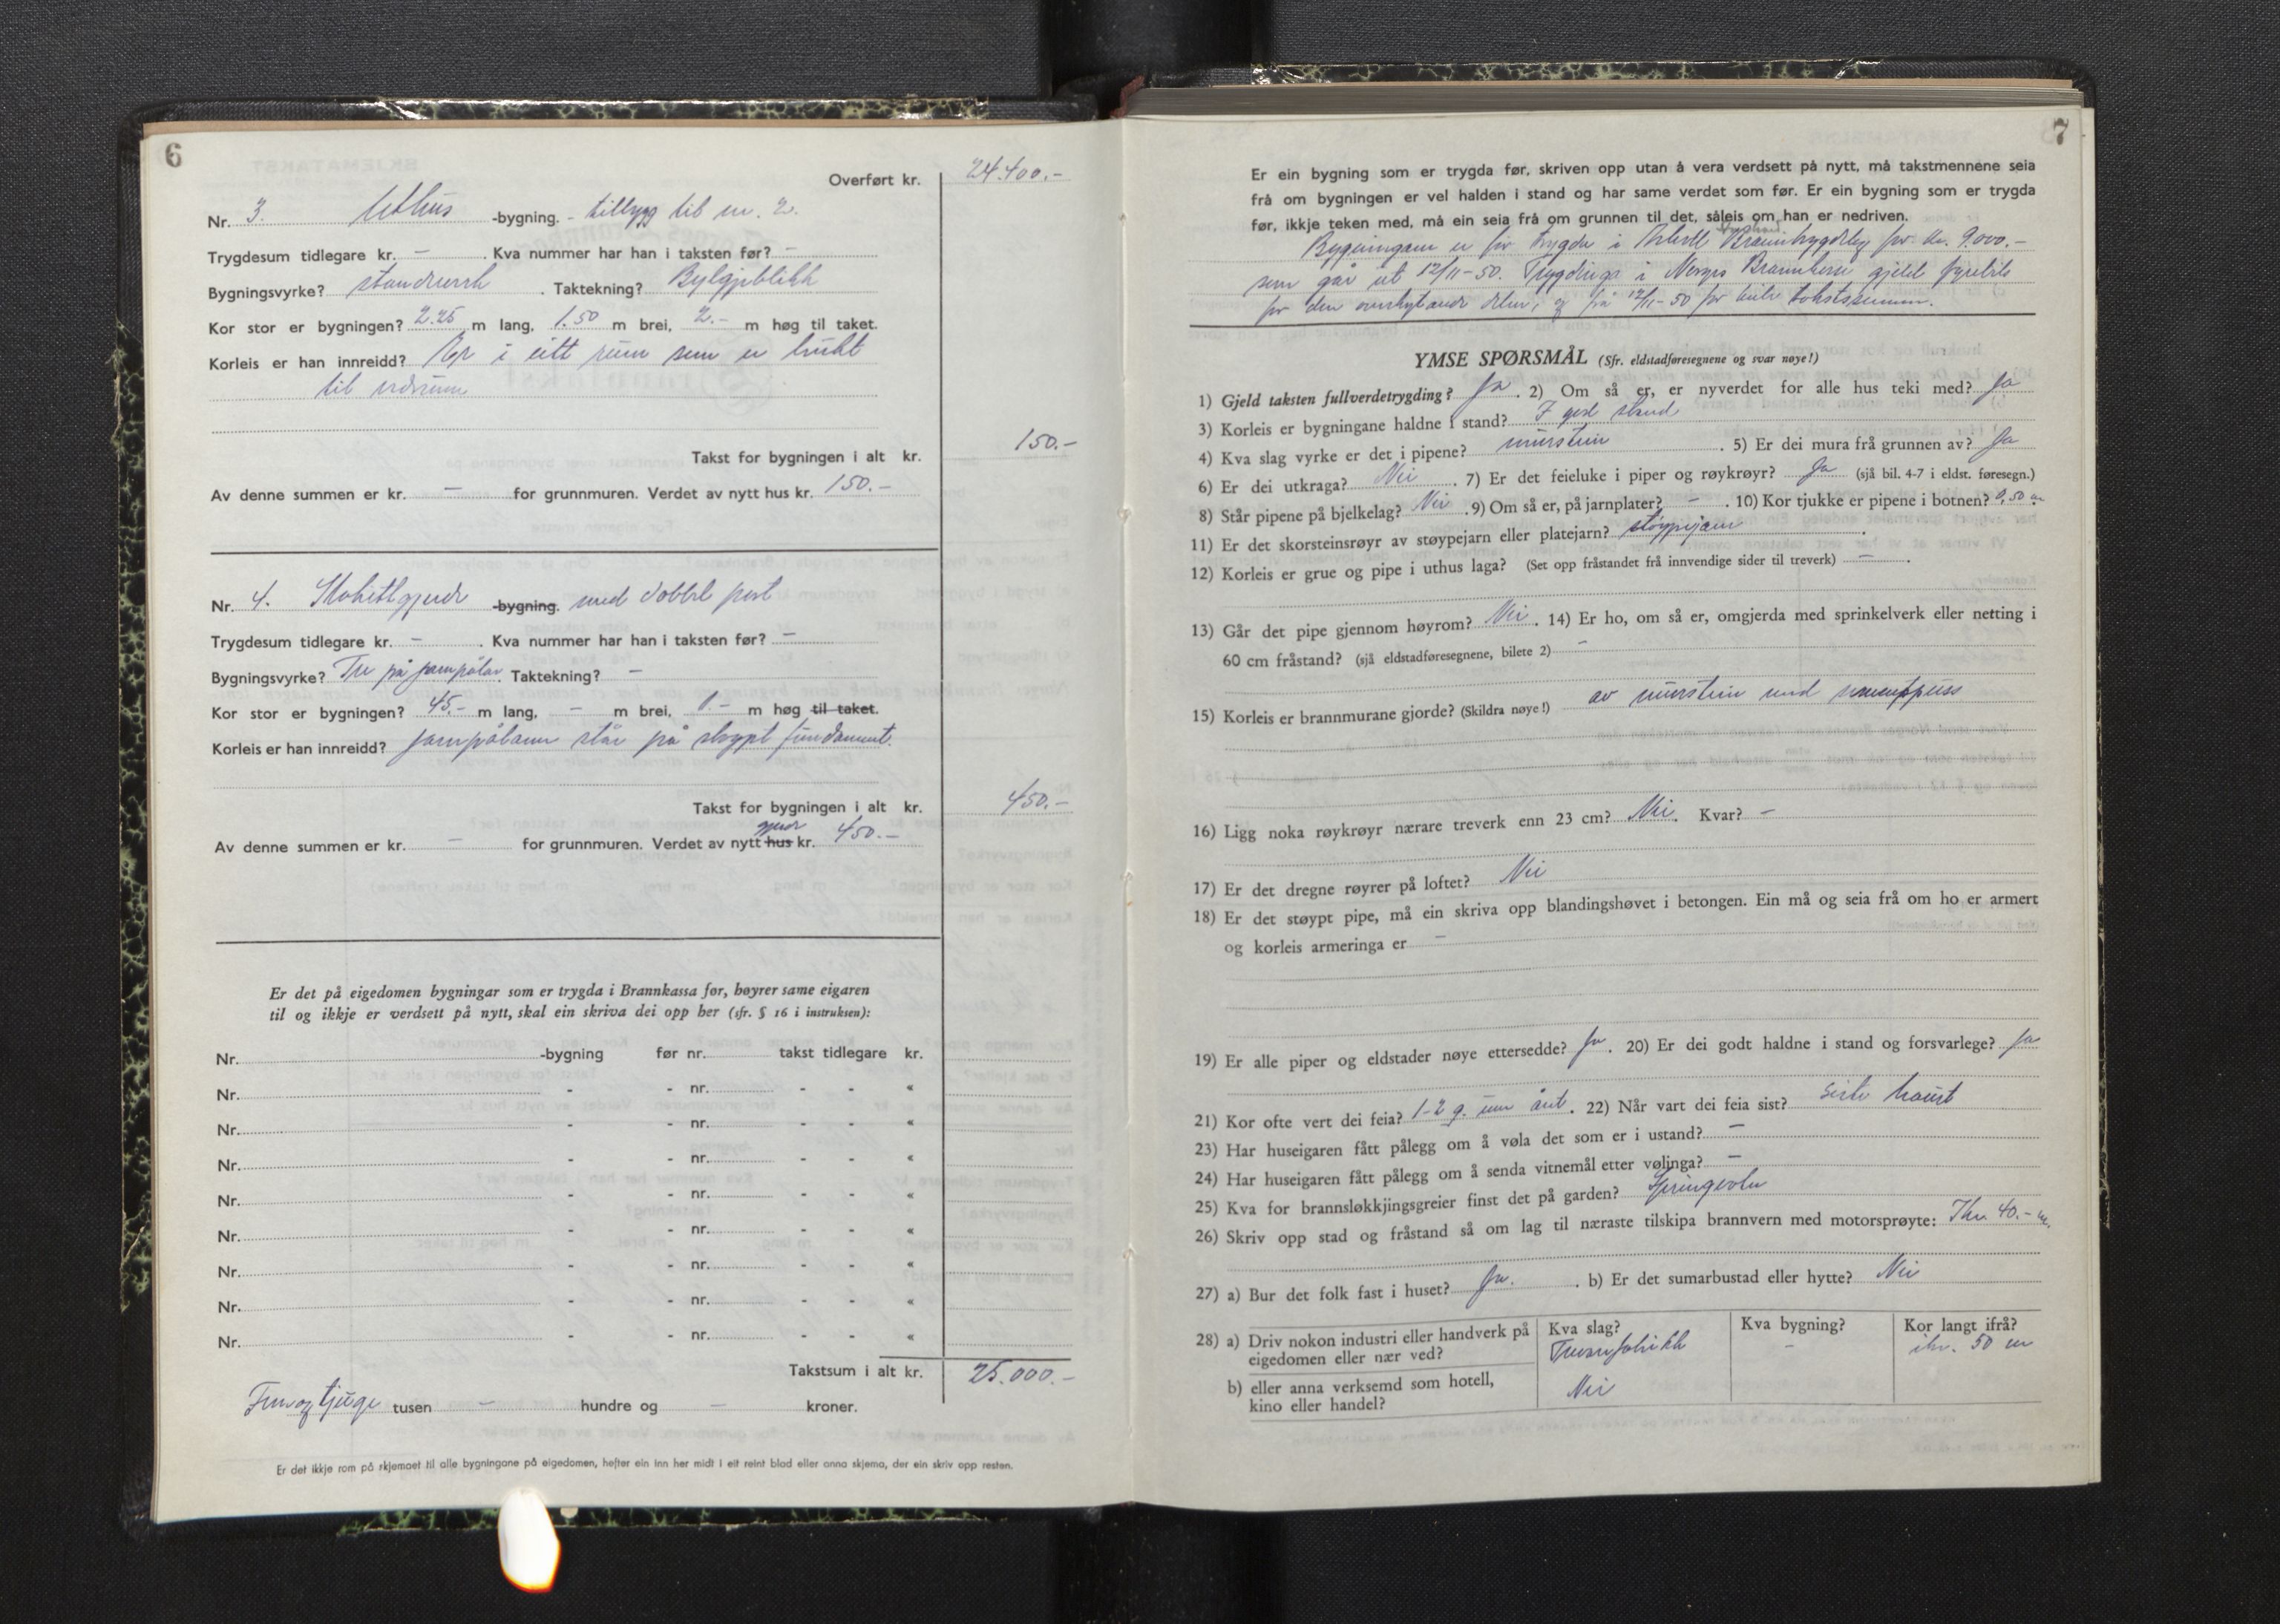 6
Overført kr. 24.400.-
Nr. 3. Uthus -bygning. - tilbygg til nr. 2.
Trygdesum tidlegare kr. - . Kva nummer har han i taksten før? -
Bygningsvyrke? standverk . Taktekning? Bylgjeblikk
Kor stor er bygningen? 2.25 m lang, 1.50 m brei, 2.- m høg til taket.
Korleis er han innreidd? Er i eitt rum som er brukt
til vedrum
Takst for bygningen i alt kr. 150.-
Av denne summen er kr. - for grunnmuren. Verdet av nytt hus kr. 150.-
Nr. 4. Stakittgjerde -bygning. med dobbel port
Trygdesum tidlegare kr. - . Kva nummer har han i taksten før? -
Bygningsvyrke? Tre på jarnpålar. Taktekning? -
Kor stor er bygningen? 45.- m lang, - m brei, 1.- m høg til taket.
Korleis er han innreidd? Jarnpålane står på støypt fundament.
Takst for bygningen i alt kr. 450.-
gjerde
Av denne summen er kr. - for grunnmuren. Verdet av nytt hus kr. 450.-
Er det på eigedomen bygningar som er trygda i Brannkassa før, høyrer same eigaren
til og ikkje er verdsett på nytt, skal ein skriva dei opp her (sfr. § 16 i instruksen):
Nr. -bygning før nr. takst tidlegare kr.
Nr. - - nr. - - «
Nr. - - nr. - - «
Nr. - - nr. - - «
Nr. - - nr. - - «
Nr. - - nr. - - «
Nr. - - nr. - - «
Nr. - - nr. - - «
Nr. - - nr. - - «
Takstsum i alt kr. 25.000.-
Fem og tjuge tusen - hundre og - kroner.
Er det ikkje rom på skjemaet til alle bygningane på eigedomen, hefter ein inn her midt i eit reint blad eller anna skjema, der ein skriv opp resten.
7
Er ein bygning som er trygda før, skriven opp utan å vera verdsett på nytt, må takstmennene seia
frå om bygningen er vel halden i stand og har same verdet som før. Er ein bygning som er trygda
før, ikkje teken med, må ein seia frå om grunnen til det, såleis om han er nedriven.
Bygningane er før trygda i Brannbygdelag for kr. 9.000.-
som går ut 12/11-50. Trygdinga i Norges Brannkasse gjeld fyrebils
for den overskytande delen, og frå 12/11-50 for heile takstsummen.
YMSE SPØRSMÅL (Sfr. eldstadføresegnene og svar nøye!)
1) Gjeld taksten fullverdetrygding? Ja . 2) Om så er, er nyverdet for alle hus teki med? Ja
3) Korleis er bygningane haldne i stand? I god stand
4) Kva slag vyrke er det i pipene? murstein . 5) Er dei mura frå grunnen av? Ja
6) Er dei utkraga? Nei . 7) Er det feieluke i piper og røykrøyr? Ja (sjå bil. 4-7 i eldst. føresegn.)
8) Står pipene på bjelkelag? Nei . 9) Om så er, på jarnplater? - . 10) Kor tjukke er pipene i botnen? 0,50 m
11) Er det skorsteinsrøyr av støypejarn eller platejarn? støypejarn .
12) Korleis er grue og pipe i uthus laga? (Set opp fråstandet frå innvendige sider til treverk) - .
13) Går det pipe gjennom høyrom? Nei . 14) Er ho, om så er, omgjerda med sprinkelverk eller netting i
60 cm fråstand? (sjå eldstadføresegnene, bilete 2) -
15) Korleis er brannmurane gjorde? (Skildra nøye!) av murstein med sementpuss
16) Ligg noka røykrøyr nærare treverk enn 23 cm? Nei. Kvar? -
17) Er det dregne røyrer på loftet? Nei
18) Er det støypt pipe, må ein skriva opp blandingshøvet i betongen. Ein må og seia frå om ho er armert
og korleis armeringa er -
19) Er alle piper og eldstader nøye ettersedde? Ja . 20) Er dei godt haldne i stand og forsvarlege? Ja
21) Kor ofte vert dei feia? 1-2 g. um året . 22) Når vart dei feia sist? siste haust
23) Har huseigaren fått pålegg om å vøla det som er i ustand? -
24) Har huseigaren fått pålegg om å senda vitnemål etter vølinga? -
25) Kva for brannsløkkjingsgreier finst det på garden? Springvatn
26) Skriv opp stad og fråstand så om lag til næraste tilskipa brannvern med motorsprøyte: 40.- m.
27) a) Bur det folk fast i huset? Ja. . b) Er det sumarbustad eller hytte? Nei
28) a) Driv nokon industri eller handverk på eigedomen eller nær ved? Kva slag? Kva bygning? - Kor langt ifrå? ikr. 50 m
b) eller anna verksemd som hotell, kino eller handel? Nei